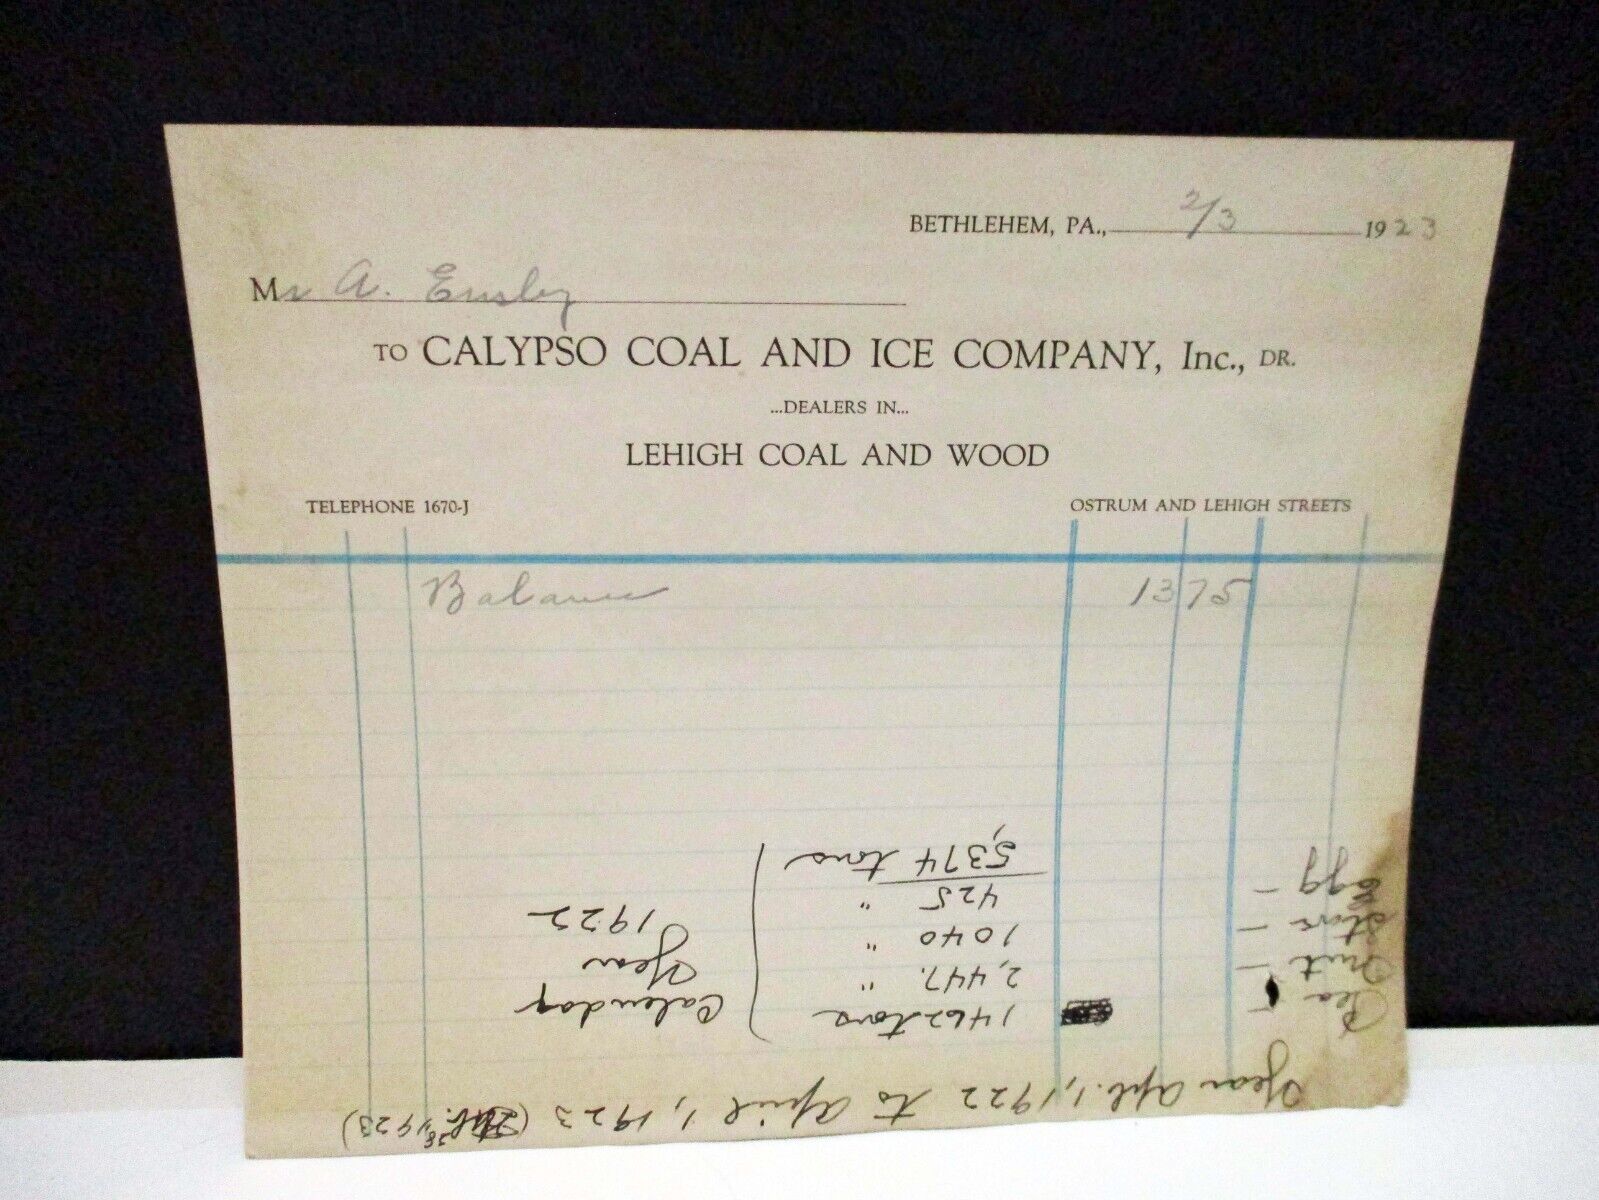 BETHLEHEM, PA., 2/3 1923
Mr A.
TO CALYPSO COAL AND ICE COMPANY, Inc., DR.
...DEALERS IN...
LEHIGH COAL AND WOOD
TELEPHONE 1670-J OSTRUM AND LEHIGH STREETS
Balance 13 75
Year Apl. 1, 1922 to April 1, 1923 (Feb. 28, 1923)
Pea - 1462 tons Calendar
Nut - 2,447. " Year
Stove - 1040 " 1922
Egg - 425 "
5,374 tons